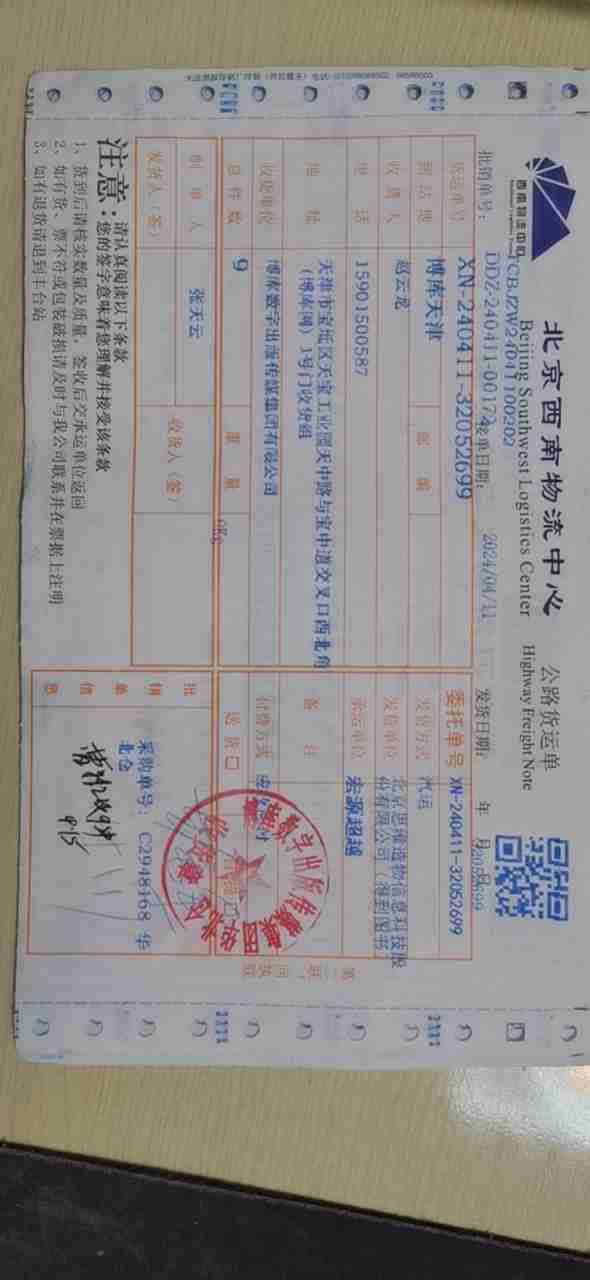 北京西南物流中心
Beijing Southwest Logistics Center
公路货运单
Highway Freight Note
西南物流中心
TCBJZW24041100202
批销单号: DDZ-240411-00174
接单日期: 2024/04/11
发货日期: 年 月 日
货运单号 XN-240411-32052699
委托单号 XN-240411-32052699
到站地 博库天津 邮编
发货方式 汽运
收货人 赵云龙
发货单位 北京思维造物信息科技股份有限公司(得到图书
电话 15901500587
承运单位 宏源超越
地址 天津市宝坻区天宝工业园天中路与宝中道交叉口西北角
(博库网)1号门收货组
备注
收货单位 博库数字出版传媒集团有限公司
付费方式
总件数 9 重量 0Kg
送货口
制单人 张天云 收货人(签)
发货人(签)
批销单信息
采购单号: C2948168 华
北仓
4.15
第二联:回执联
注意:
请认真阅读以下条款
您的签字意味着您理解并接受该条款
1、货到后请核实数量及质量,签收后交承运单位返回
2、如有货、票不符或包装破损请及时与我公司联系并在票据上注明
3、如有退货请退到丰台站